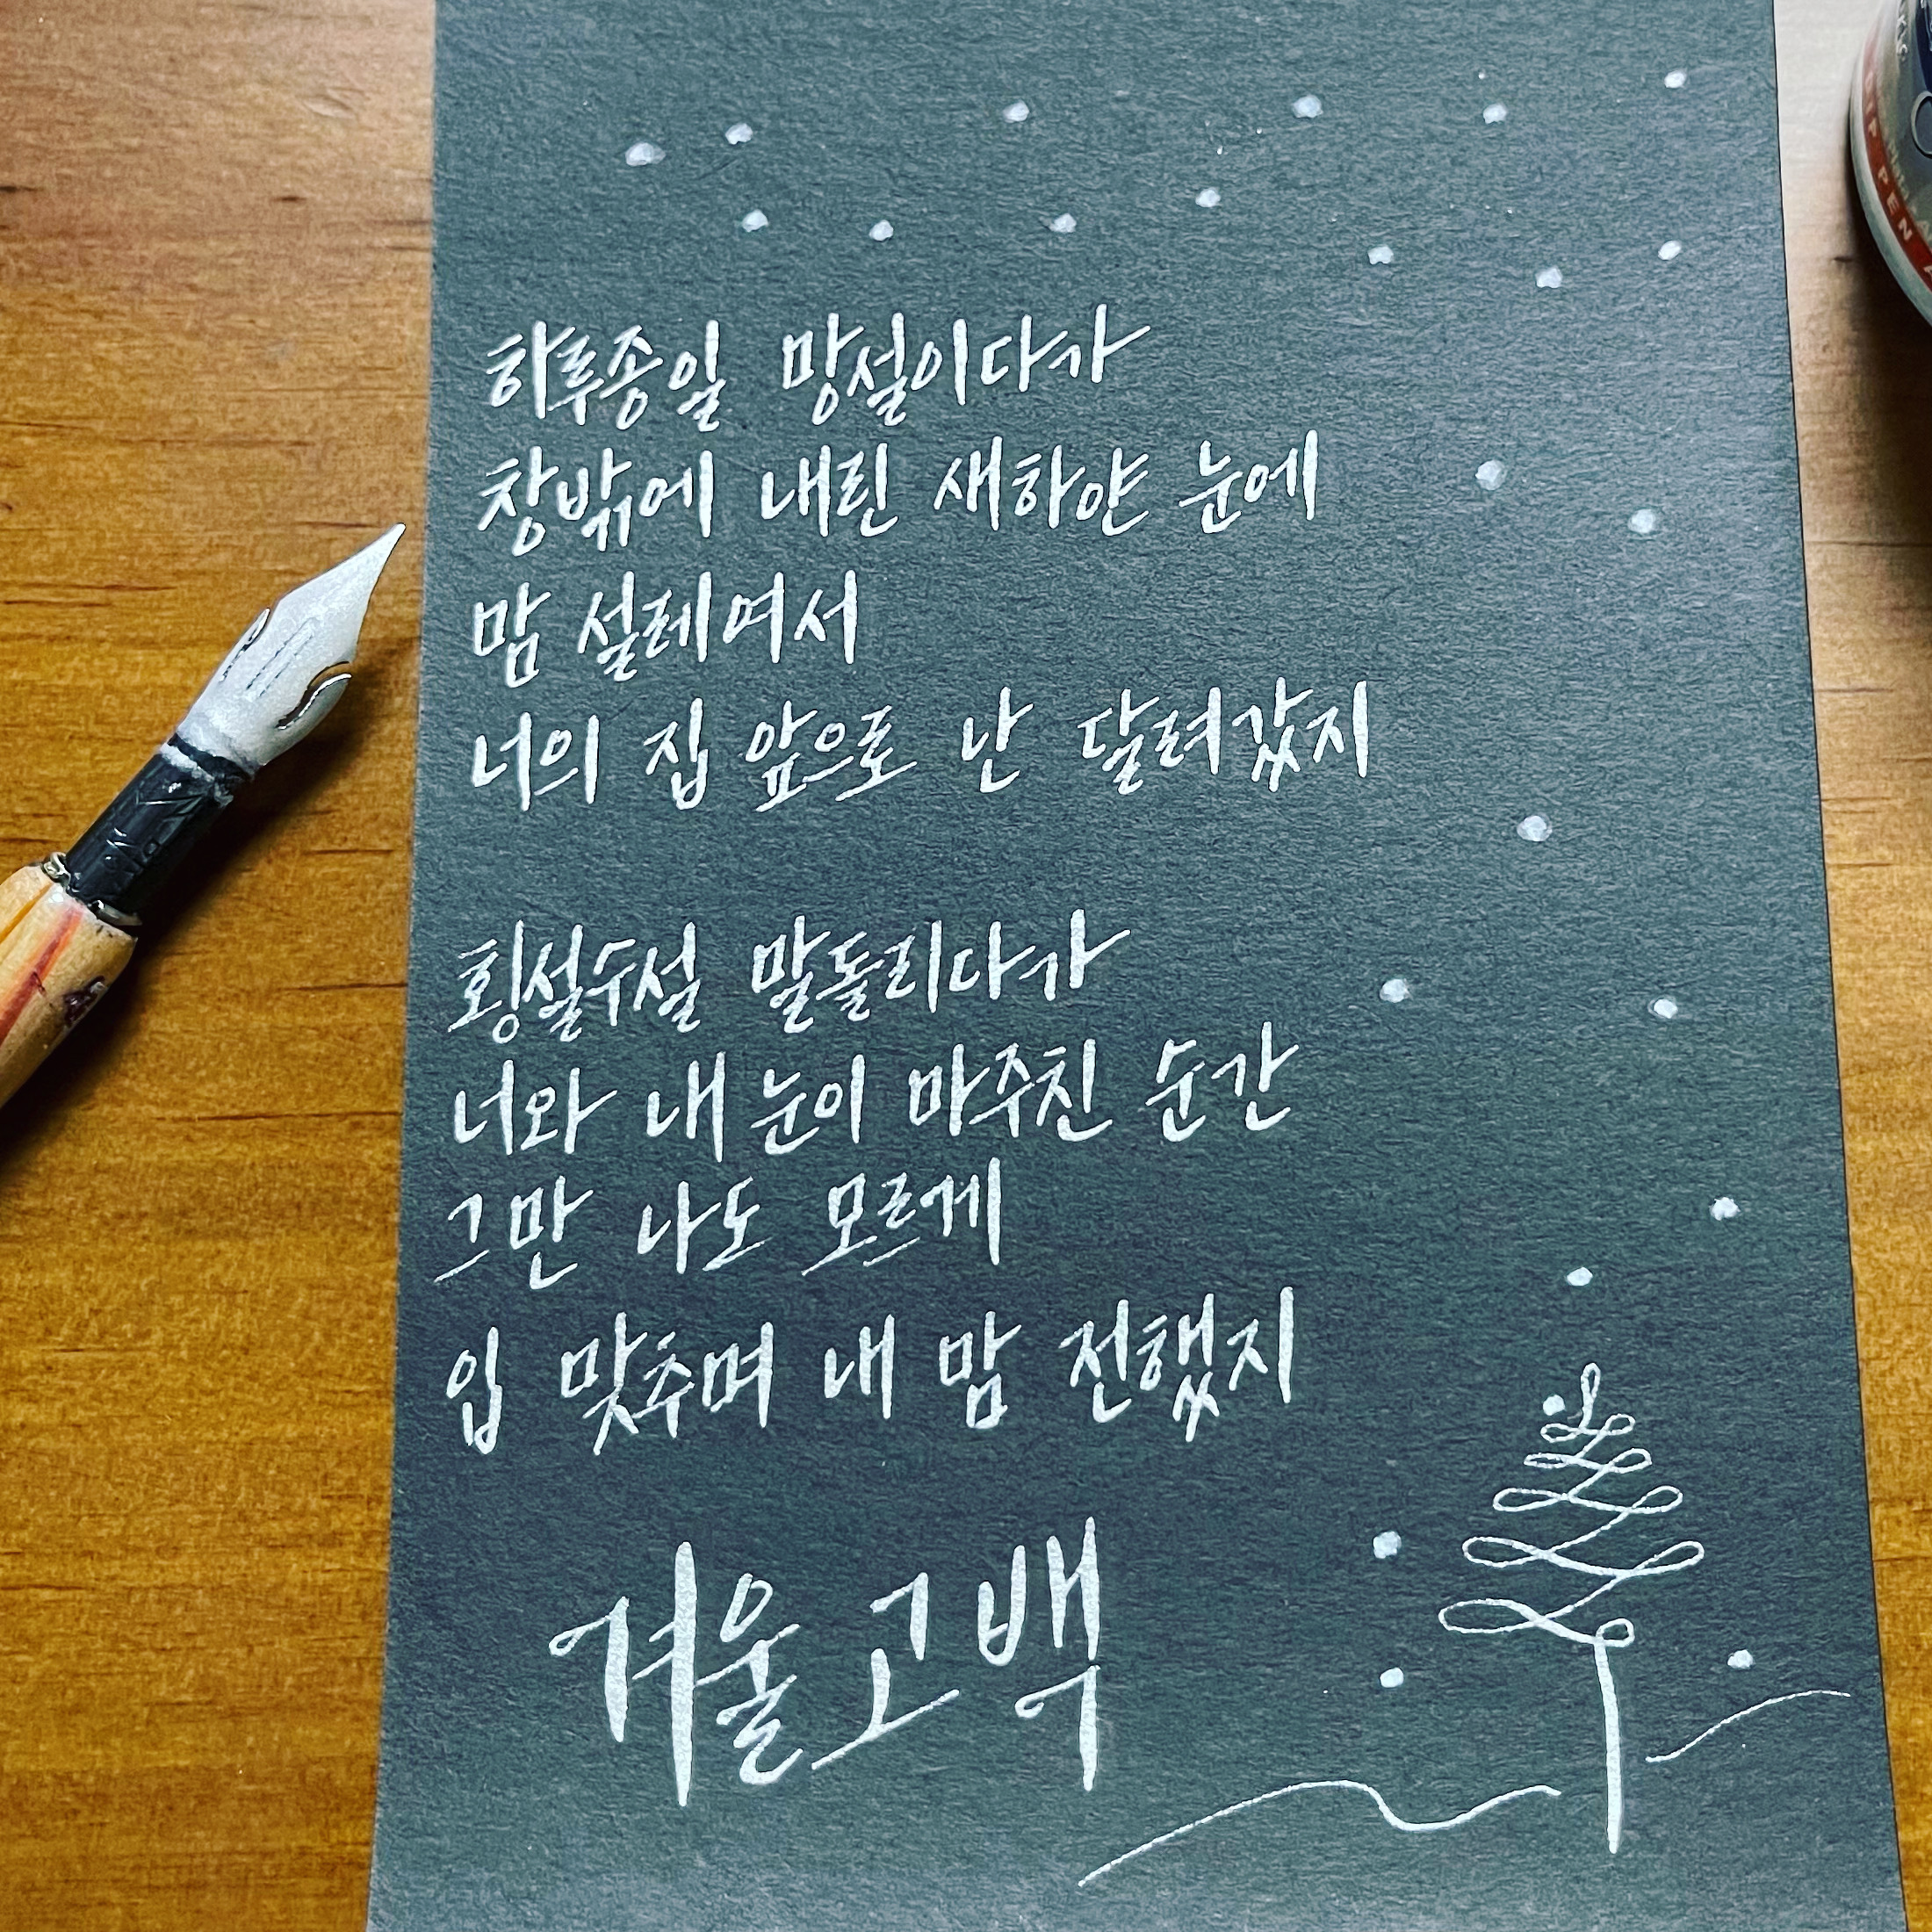 하루종일 망설이다가
창밖에 내린 새하얀 눈에
맘 설레여서
너의 집 앞으로 난 달려갔지
횡설수설 말돌리다가
너와 내 눈이 마주친 순간
그만 나도 모르게
입 맞추며 내 맘 전했지
겨울고백
PEN